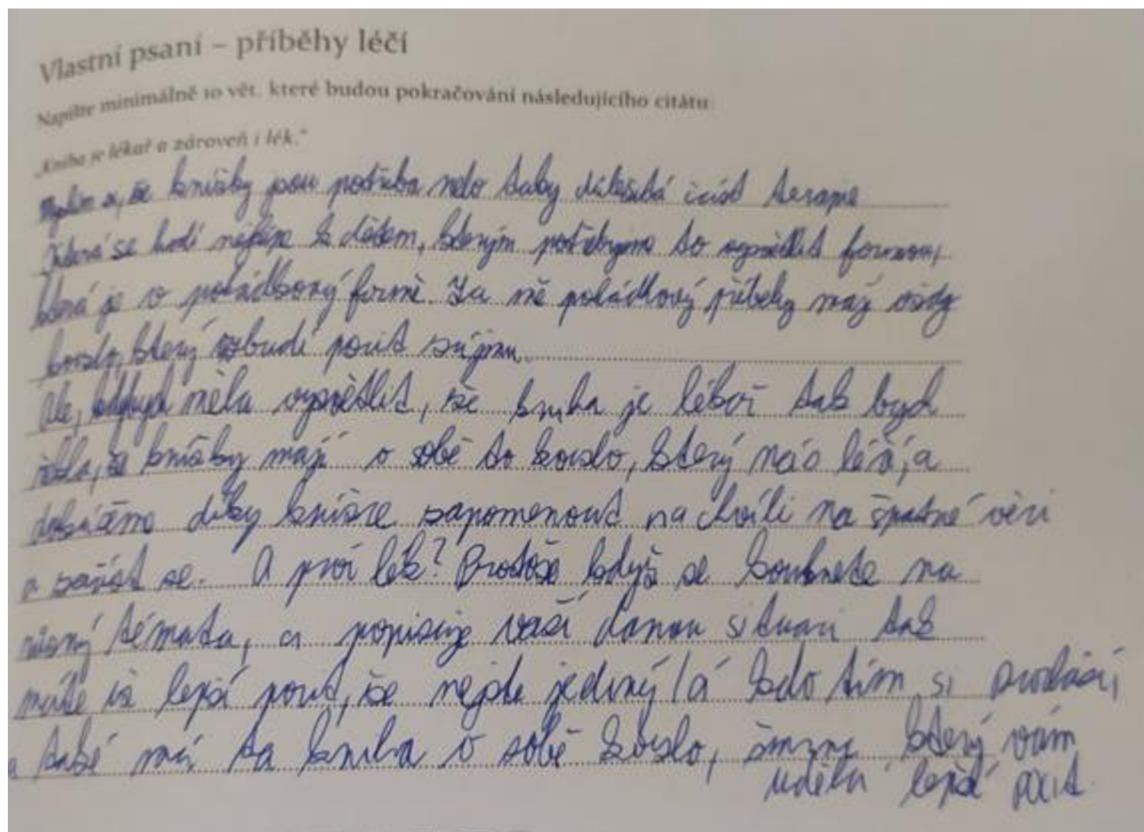 Vlastní psaní – příběhy léčí
Napište minimálně 10 vět, které budou pokračování následujícího citátu:
„Kniha je lékař a zároveň i lék."
Myslím si, že knížky jsou potřeba nebo taky důležitá část terapie
která se hodí nejlépe k dětem, kterým potřebujeme to vysvětlit formou,
která je v pohádkový formě. Za mě pohádkový příběhy mají vždy
kouzlo, který vzbudí pocit zájmu.
Ale, kdybych měla vysvětlit, že kniha je lékař tak bych
řekla, že knížky mají v sobě to kouzlo, který nás léčí, a
dokážeme díky knížce zapomenout na chvíli na špatné věci
a začíst se. A proč lék? Protože když se kouknete na
různý témata, a popisuje vaší danou situaci tak
máte i lepší pocit, že nejste jediný/á kdo tím si prochází,
a také má ta kniha v sobě kouzlo, který vám
udělá lepší pocit.